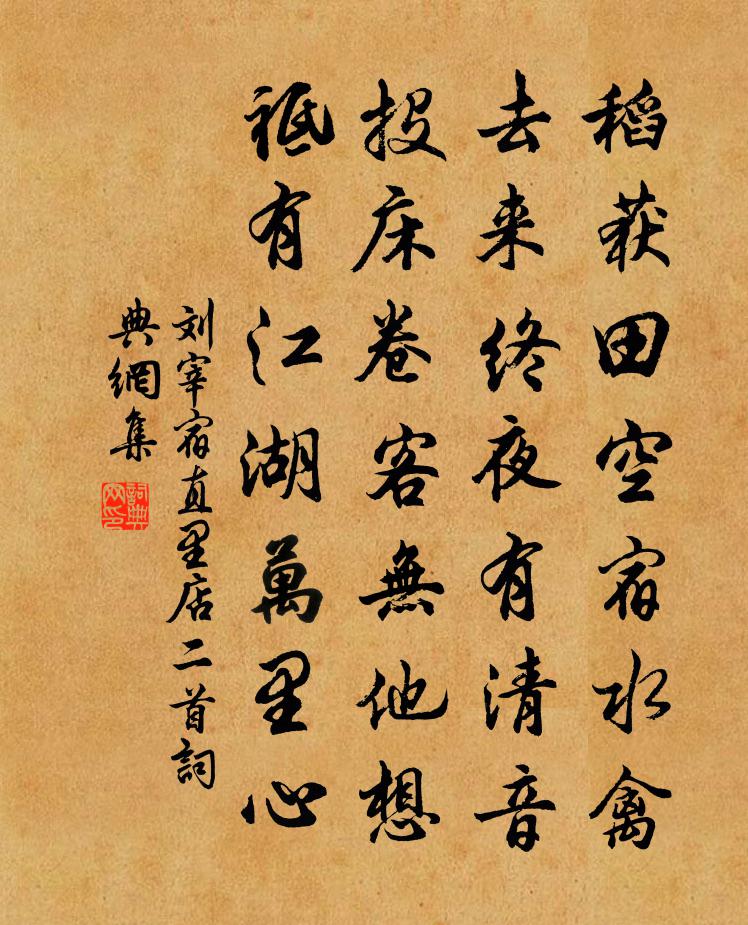 稻获田空宿水禽
去来终夜有清音
投床卷客無他想
祗有江湖萬里心
刘宰宿直里店二首詞
典網集
詞典网印